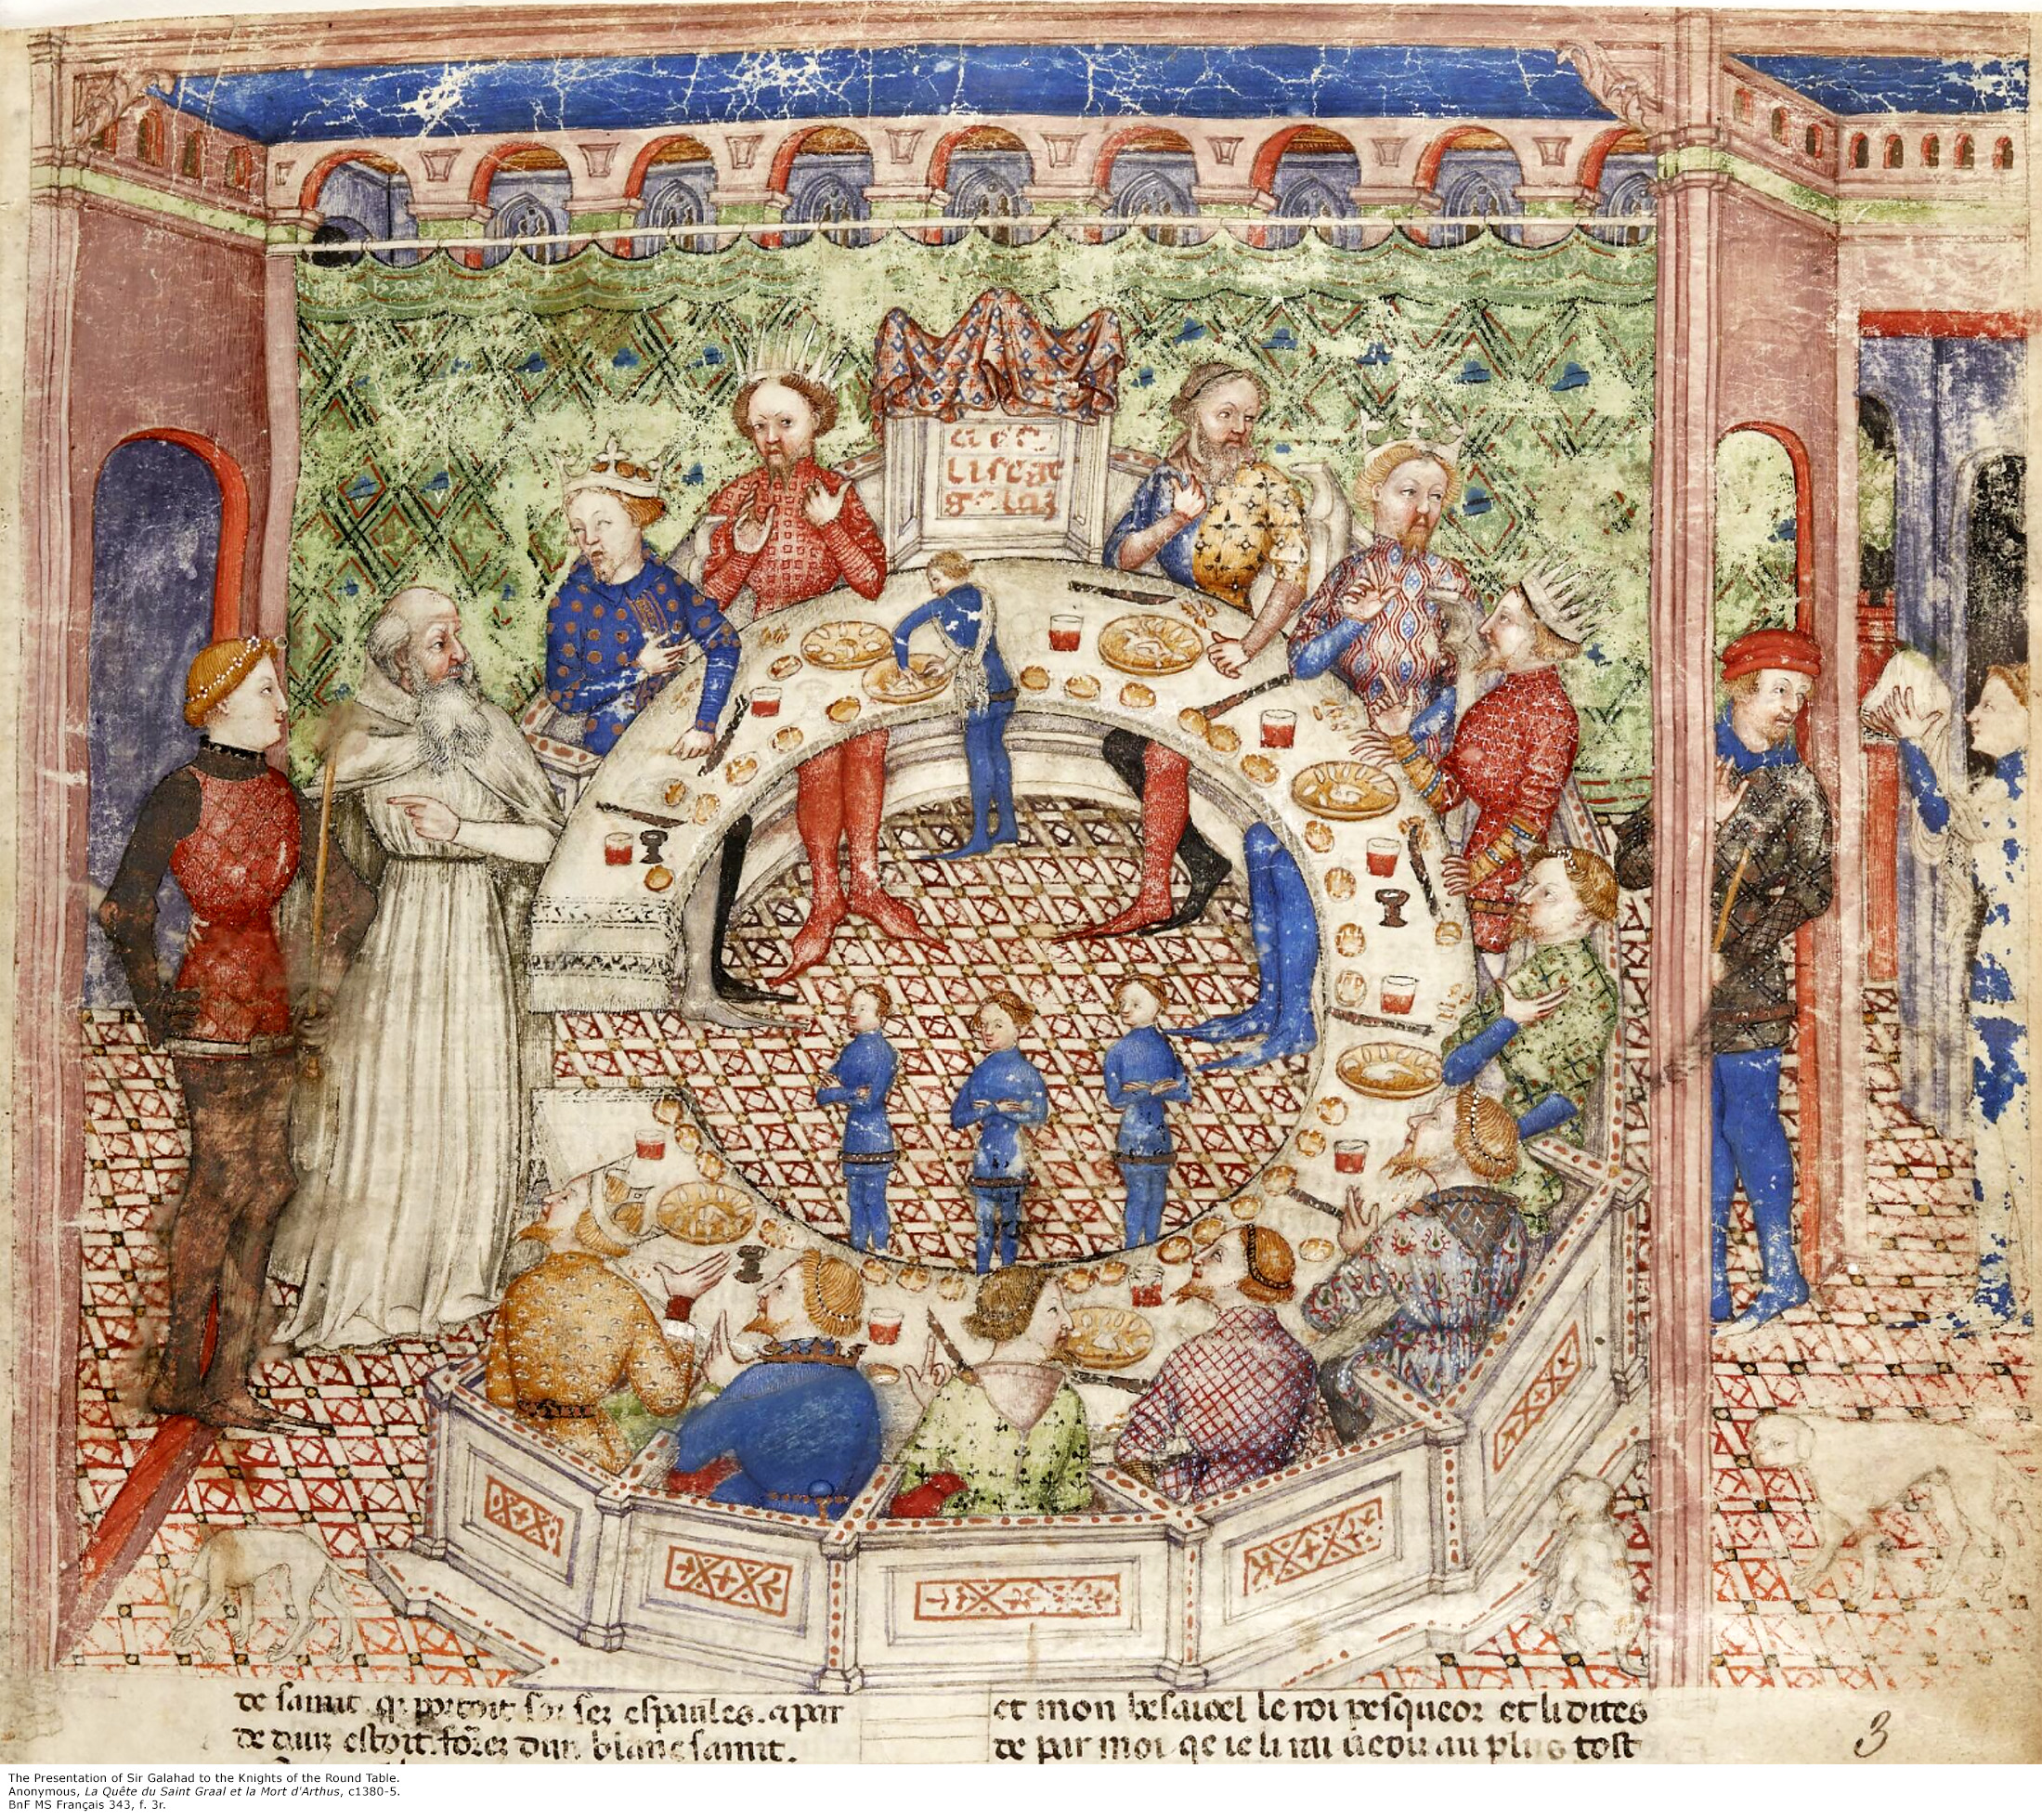 ci est
li seac
galaz
de samit. qi portoit sor ses espaules. a par
de danz estoit. forrez dun blanc samit.
et mon besaioel le roi pesqueor et li dites
de par moi qe ie li irai ueoir au plus tost
3
The Presentation of Sir Galahad to the Knights of the Round Table.
Anonymous, La Quête du Saint Graal et la Mort d'Arthus, c1380-5.
BnF MS Français 343, f. 3r.